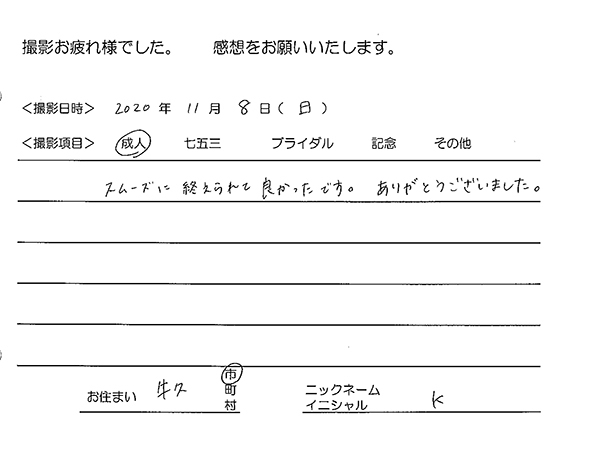 撮影お疲れ様でした。 感想をお願いいたします。
＜撮影日時＞ 2020 年 11 月 8 日（日）
＜撮影項目＞ 成人 七五三 ブライダル 記念 その他
スムーズに 終えられて 良かったです。 ありがとうございました。
お住まい 牛久 市
町
村
ニックネーム
イニシャル K